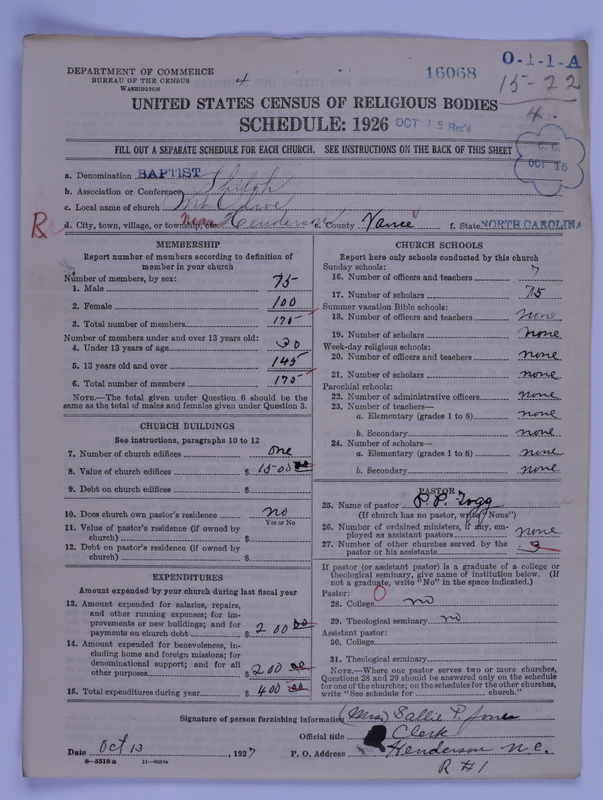 DEPARTMENT OF COMMERCE
BUREAU OF THE CENSUS
WASHINGTON
4
16068
O-1-1-A
15-22
4
UNITED STATES CENSUS OF RELIGIOUS BODIES
SCHEDULE: 1926
OCT 15 Rec'd
C. C.
OCT 15
FILL OUT A SEPARATE SCHEDULE FOR EACH CHURCH. SEE INSTRUCTIONS ON THE BACK OF THIS SHEET
a. Denomination BAPTIST
b. Association or Conference Shiloh
c. Local name of church Mt. Olive
R d. City, town, village, or township, etc. Near Henderson e. County Vance f. State NORTH CAROLINA
MEMBERSHIP
Report number of members according to definition of
member in your church
Number of members, by sex:
1. Male 75
2. Female 100
3. Total number of members 175
Number of members under and over 13 years old:
4. Under 13 years of age 30
5. 13 years old and over 145
6. Total number of members 175
NOTE.—The total given under Question 6 should be the
same as the total of males and females given under Question 3.
CHURCH BUILDINGS
See instructions, paragraphs 10 to 12
7. Number of church edifices one
8. Value of church edifices $ 1500
9. Debt on church edifices $
10. Does church own pastor's residence no
Yes or No
11. Value of pastor's residence (if owned by
church) $
12. Debt on pastor's residence (if owned by
church) $
EXPENDITURES
Amount expended by your church during last fiscal year
13. Amount expended for salaries, repairs,
and other running expenses; for im-
provements or new buildings; and for
payments on church debt $ 200 00
14. Amount expended for benevolences, in-
cluding home and foreign missions; for
denominational support; and for all
other purposes $ 200 00
15. Total expenditures during year $ 400 00
CHURCH SCHOOLS
Report here only schools conducted by this church
Sunday schools:
16. Number of officers and teachers 7
17. Number of scholars 75
Summer vacation Bible schools:
18. Number of officers and teachers none
19. Number of scholars none
Week-day religious schools:
20. Number of officers and teachers none
21. Number of scholars none
Parochial schools:
22. Number of administrative officers none
23. Number of teachers—
a. Elementary (grades 1 to 8) none
b. Secondary none
24. Number of scholars—
a. Elementary (grades 1 to 8) none
b. Secondary none
PASTOR
25. Name of pastor P. P. Fogg
(If church has no pastor, write "None")
26. Number of ordained ministers, if any, em-
ployed as assistant pastors none
27. Number of other churches served by the
pastor or his assistants 3
If pastor (or assistant pastor) is a graduate of a college or
theological seminary, give name of institution below. (If
not a graduate, write "No" in the space indicated.)
Pastor:
28. College no
29. Theological seminary no
Assistant pastor:
30. College
31. Theological seminary
NOTE.—Where one pastor serves two or more churches,
Questions 28 and 29 should be answered only on the schedule
for one of the churches; on the schedules for the other churches,
write "See schedule for church."
Signature of person furnishing information (Mrs) Sallie P. Jones
Official title Clerk
Date Oct 13, 1927 P. O. Address Henderson N.C.
8-5518a 11-9554a R #1